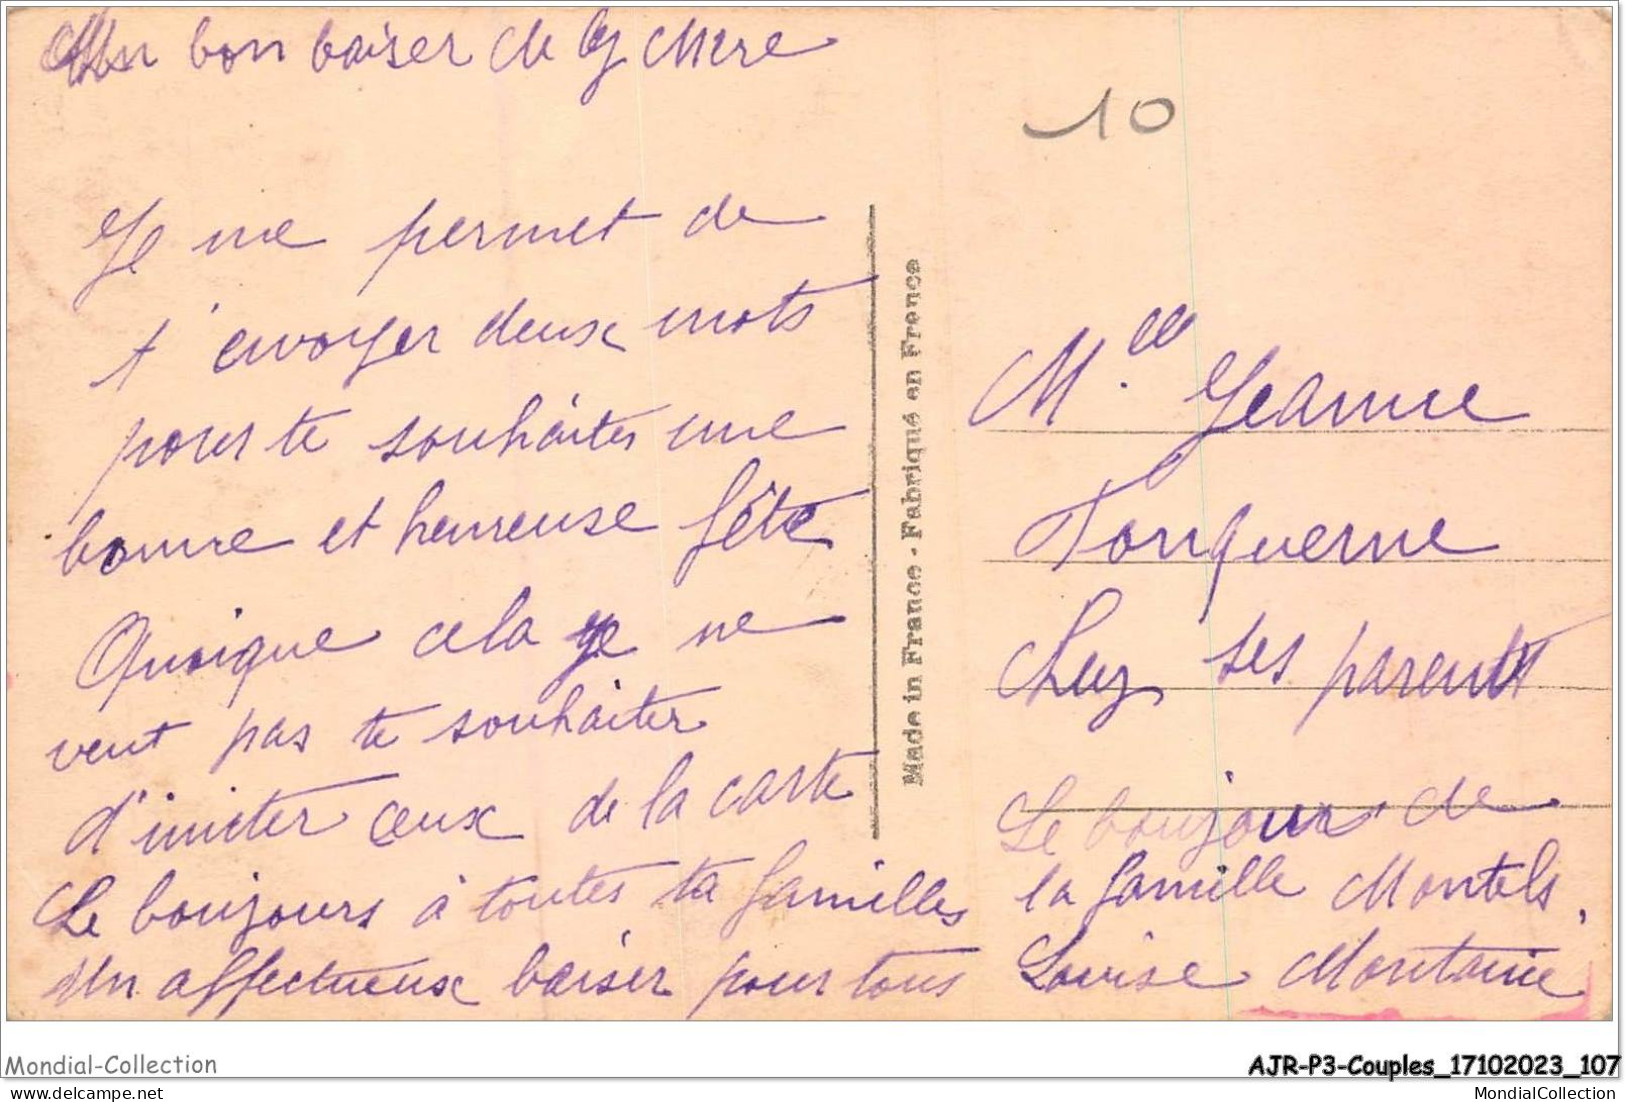 Un bon baiser de Mère
10
Je me permet de
t'envoyer deux mots
pour te souhaiter une
bonne et heureuse fête
Quoique cela je ne
veut pas te souhaiter
d'imiter ceux de la carte
Le boujours à toutes ta familles
Un affectueux baiser pour tous
Made in France - Fabriqué en France
Mlle Jeanne
Fonquerne
Chez ses parents
Le boujour de
la famille Montels,
Louise Montanié
Mondial-Collection
AJR-P3-Couples_17102023_107
MondialCollection
MondialCollection